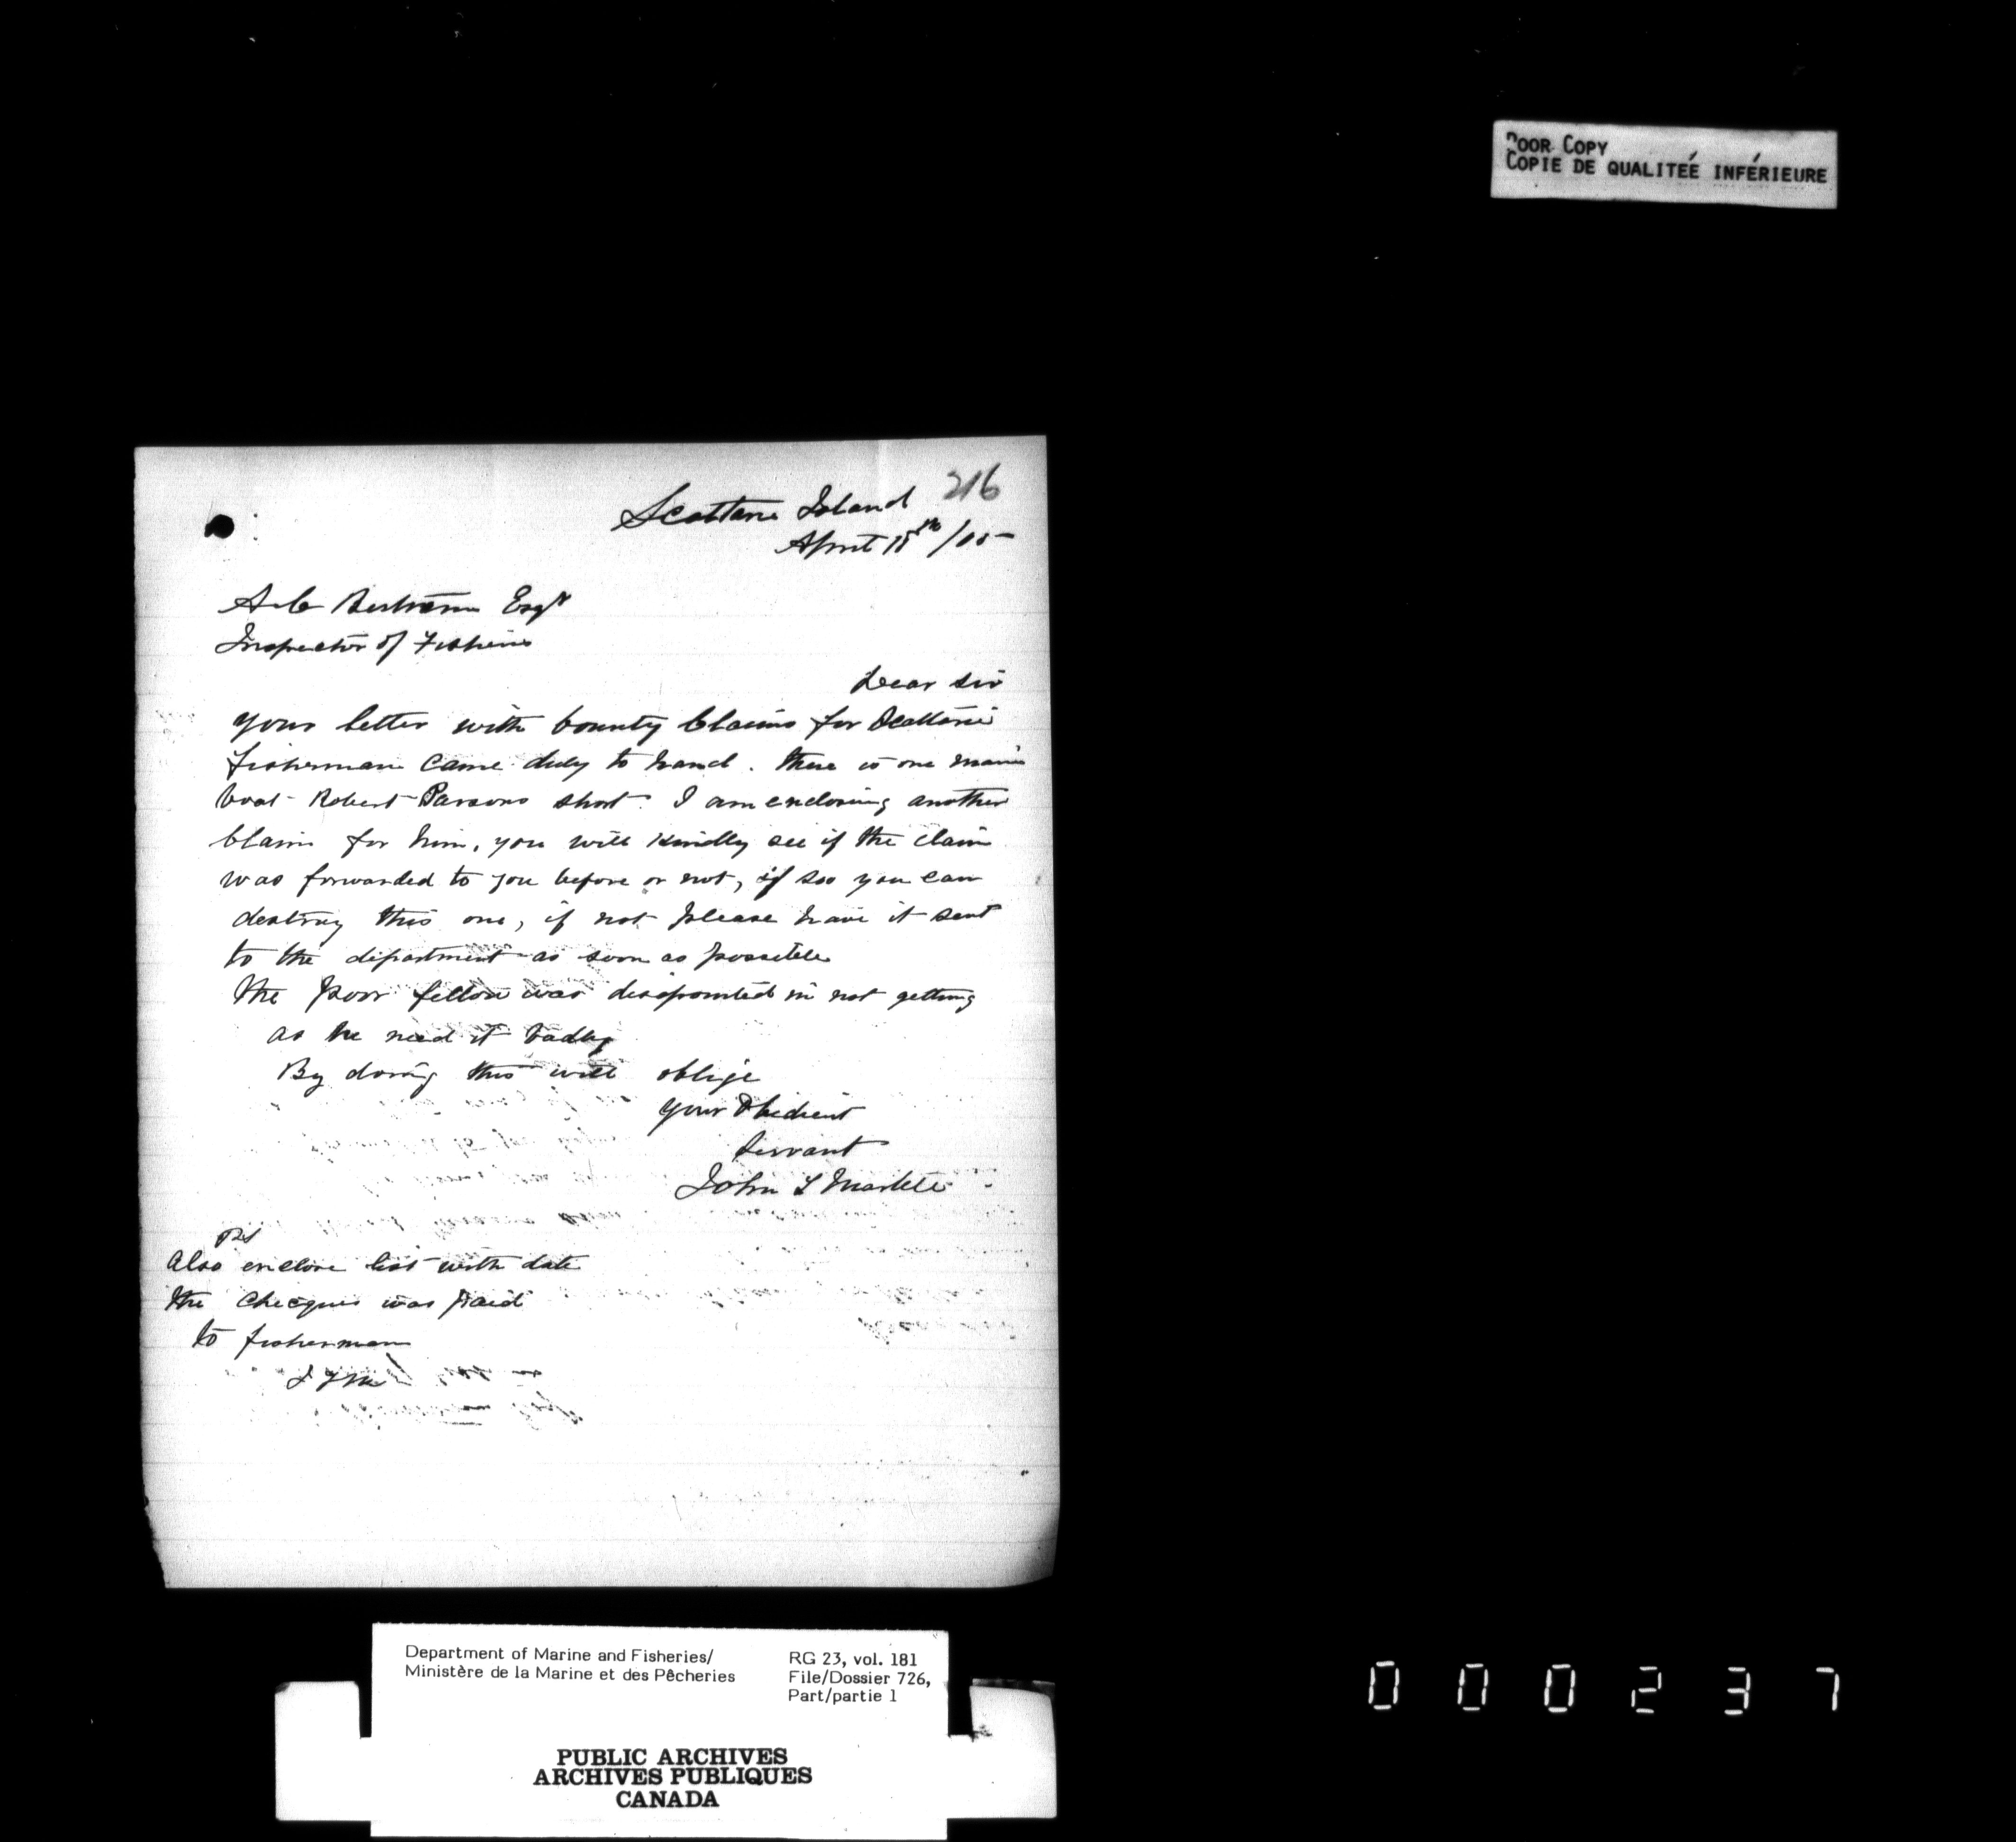 POOR COPY
COPIE DE QUALITEÉ INFÉRIEURE
216
Scattarie Island
April 18th /05
A C Bertram Esqr
Inspector of Fisheries
Dear Sir
your letter with bounty Claims for Scattarie
fisherman came duly to hand. there is one man's
boat Robert Parsons short. I am enclosing another
Claim for him, you will kindly see if the claim
was forwarded to you before or not, if soo you can
destroy this one, if not please have it sent
to the department as soon as possible
The poor fellow was disapointed in not getting
as he need it badly
By doing this will oblige
your Obedient
Servant
John
PS
Also enclose list with date
the checques was paid
to fisherman
Department of Marine and Fisheries/
Ministère de la Marine et des Pêcheries
RG 23, vol. 181
File/Dossier 726,
Part/partie 1
PUBLIC ARCHIVES
ARCHIVES PUBLIQUES
CANADA
000237